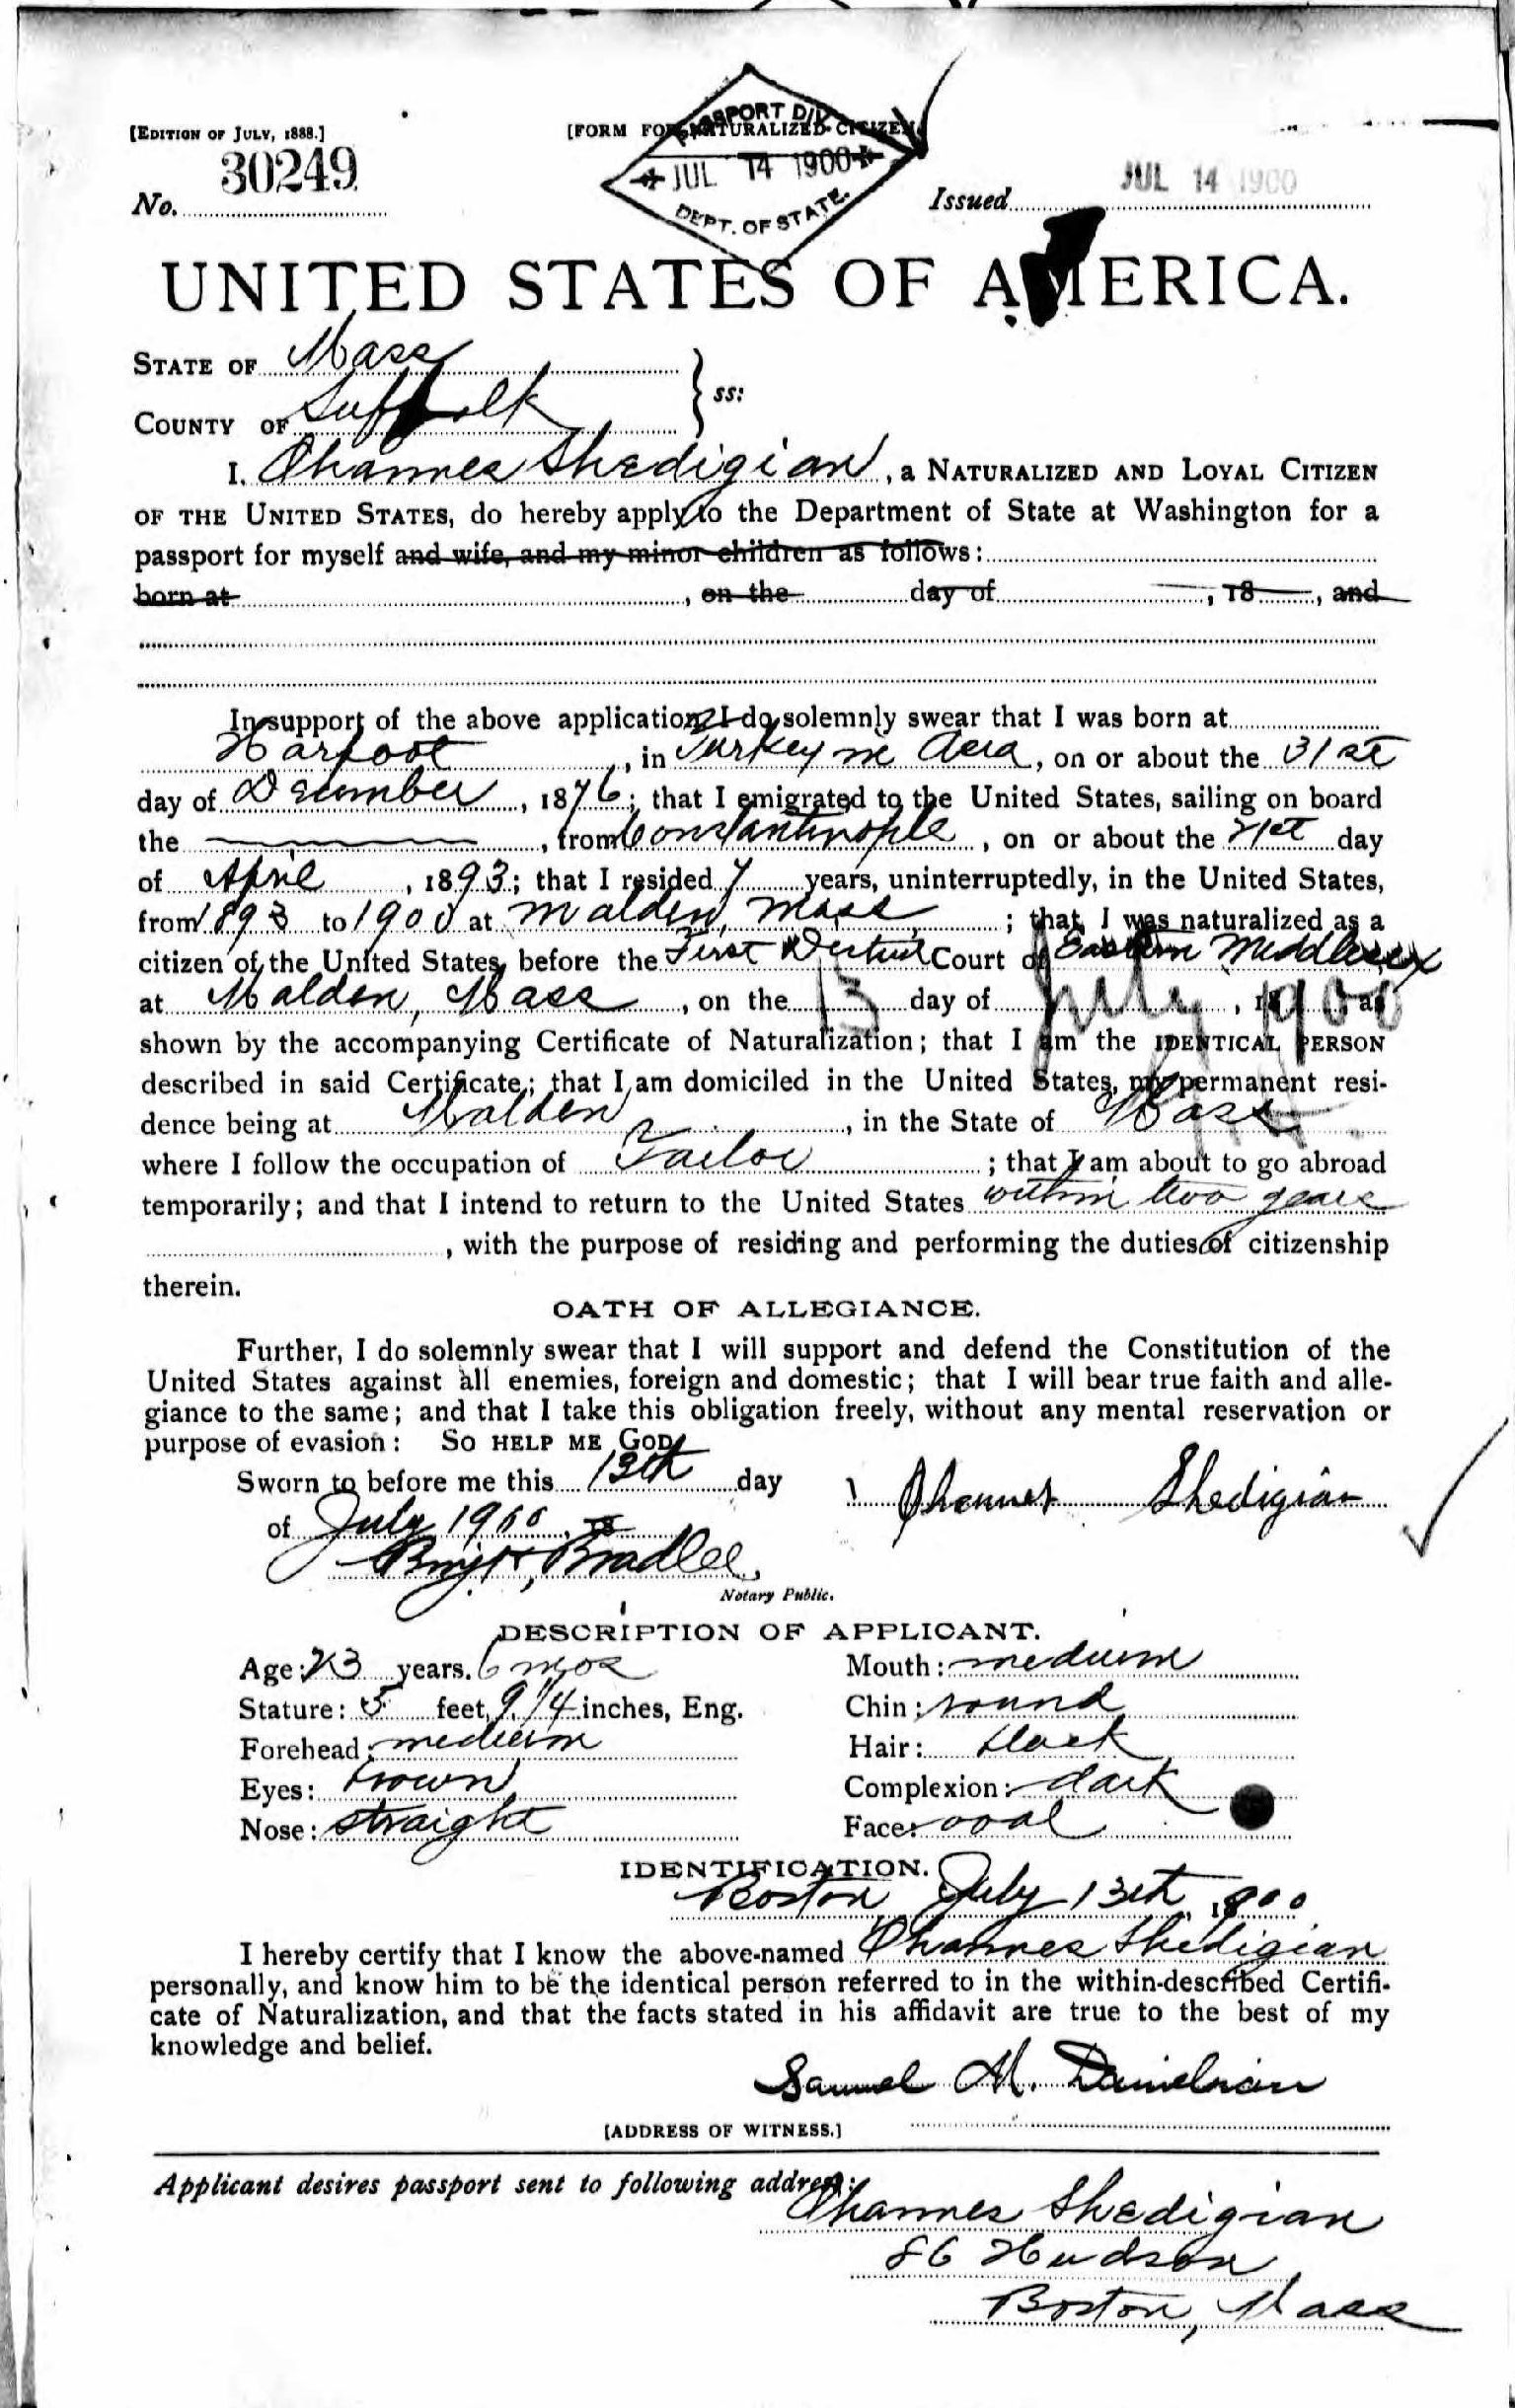 [EDITION OF JULY, 1888.]
[FORM FOR NATURALIZED CITIZEN
PASSPORT DIV
JUL 14 1900
DEPT. OF STATE.
No. 30249
Issued JUL 14 1900
UNITED STATES OF AMERICA.
STATE OF Mass
COUNTY OF Suffolk } ss:
I, Ohannes Shedigian, a NATURALIZED AND LOYAL CITIZEN
OF THE UNITED STATES, do hereby apply to the Department of State at Washington for a
passport for myself and wife, and my minor children as follows:
born at , on the day of , 18 , and
In support of the above application, I do solemnly swear that I was born at
Harpoot, in Turkey in Asia, on or about the 31st
day of December, 1876; that I emigrated to the United States, sailing on board
the , from Constantinople, on or about the 21st day
of April, 1893; that I resided 7 years, uninterruptedly, in the United States,
from 1893 to 1900 at Malden, Mass; that I was naturalized as a
citizen of the United States before the First District Court of Eastern Middlesex
at Malden, Mass, on the 13 day of July, 1900 as
shown by the accompanying Certificate of Naturalization; that I am the IDENTICAL PERSON
described in said Certificate; that I am domiciled in the United States, my permanent resi-
dence being at Malden, in the State of Mass
where I follow the occupation of Tailor; that I am about to go abroad
temporarily; and that I intend to return to the United States within two years
, with the purpose of residing and performing the duties of citizenship
therein.
OATH OF ALLEGIANCE.
Further, I do solemnly swear that I will support and defend the Constitution of the
United States against all enemies, foreign and domestic; that I will bear true faith and alle-
giance to the same; and that I take this obligation freely, without any mental reservation or
purpose of evasion: SO HELP ME GOD.
Sworn to before me this 13th day
Ohannes Shedigian
of July 1900, 18
Benj. H. Bradlee,
Notary Public.
DESCRIPTION OF APPLICANT.
Age: 23 years. 6 mos
Mouth: medium
Stature: 5 feet, 9 1/4 inches, Eng.
Chin: round
Forehead: medium
Hair: black
Eyes: brown
Complexion: dark
Nose: straight
Face: oval
IDENTIFICATION.
Boston July 13th, 1900
I hereby certify that I know the above-named Ohannes Shedigian
personally, and know him to be the identical person referred to in the within-described Certifi-
cate of Naturalization, and that the facts stated in his affidavit are true to the best of my
knowledge and belief.
Samuel M. Danielian
[ADDRESS OF WITNESS.]
Applicant desires passport sent to following address:
Ohannes Shedigian
86 Hudson
Boston, Mass